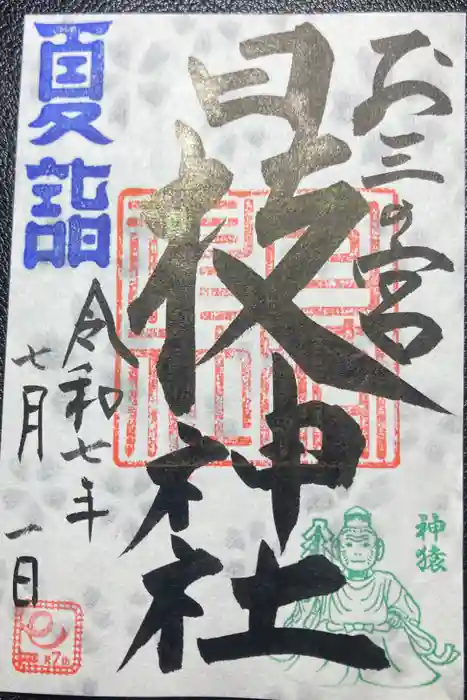 お三の宮
日枝神社
夏詣
令和七年
七月一日
神猿
R7th